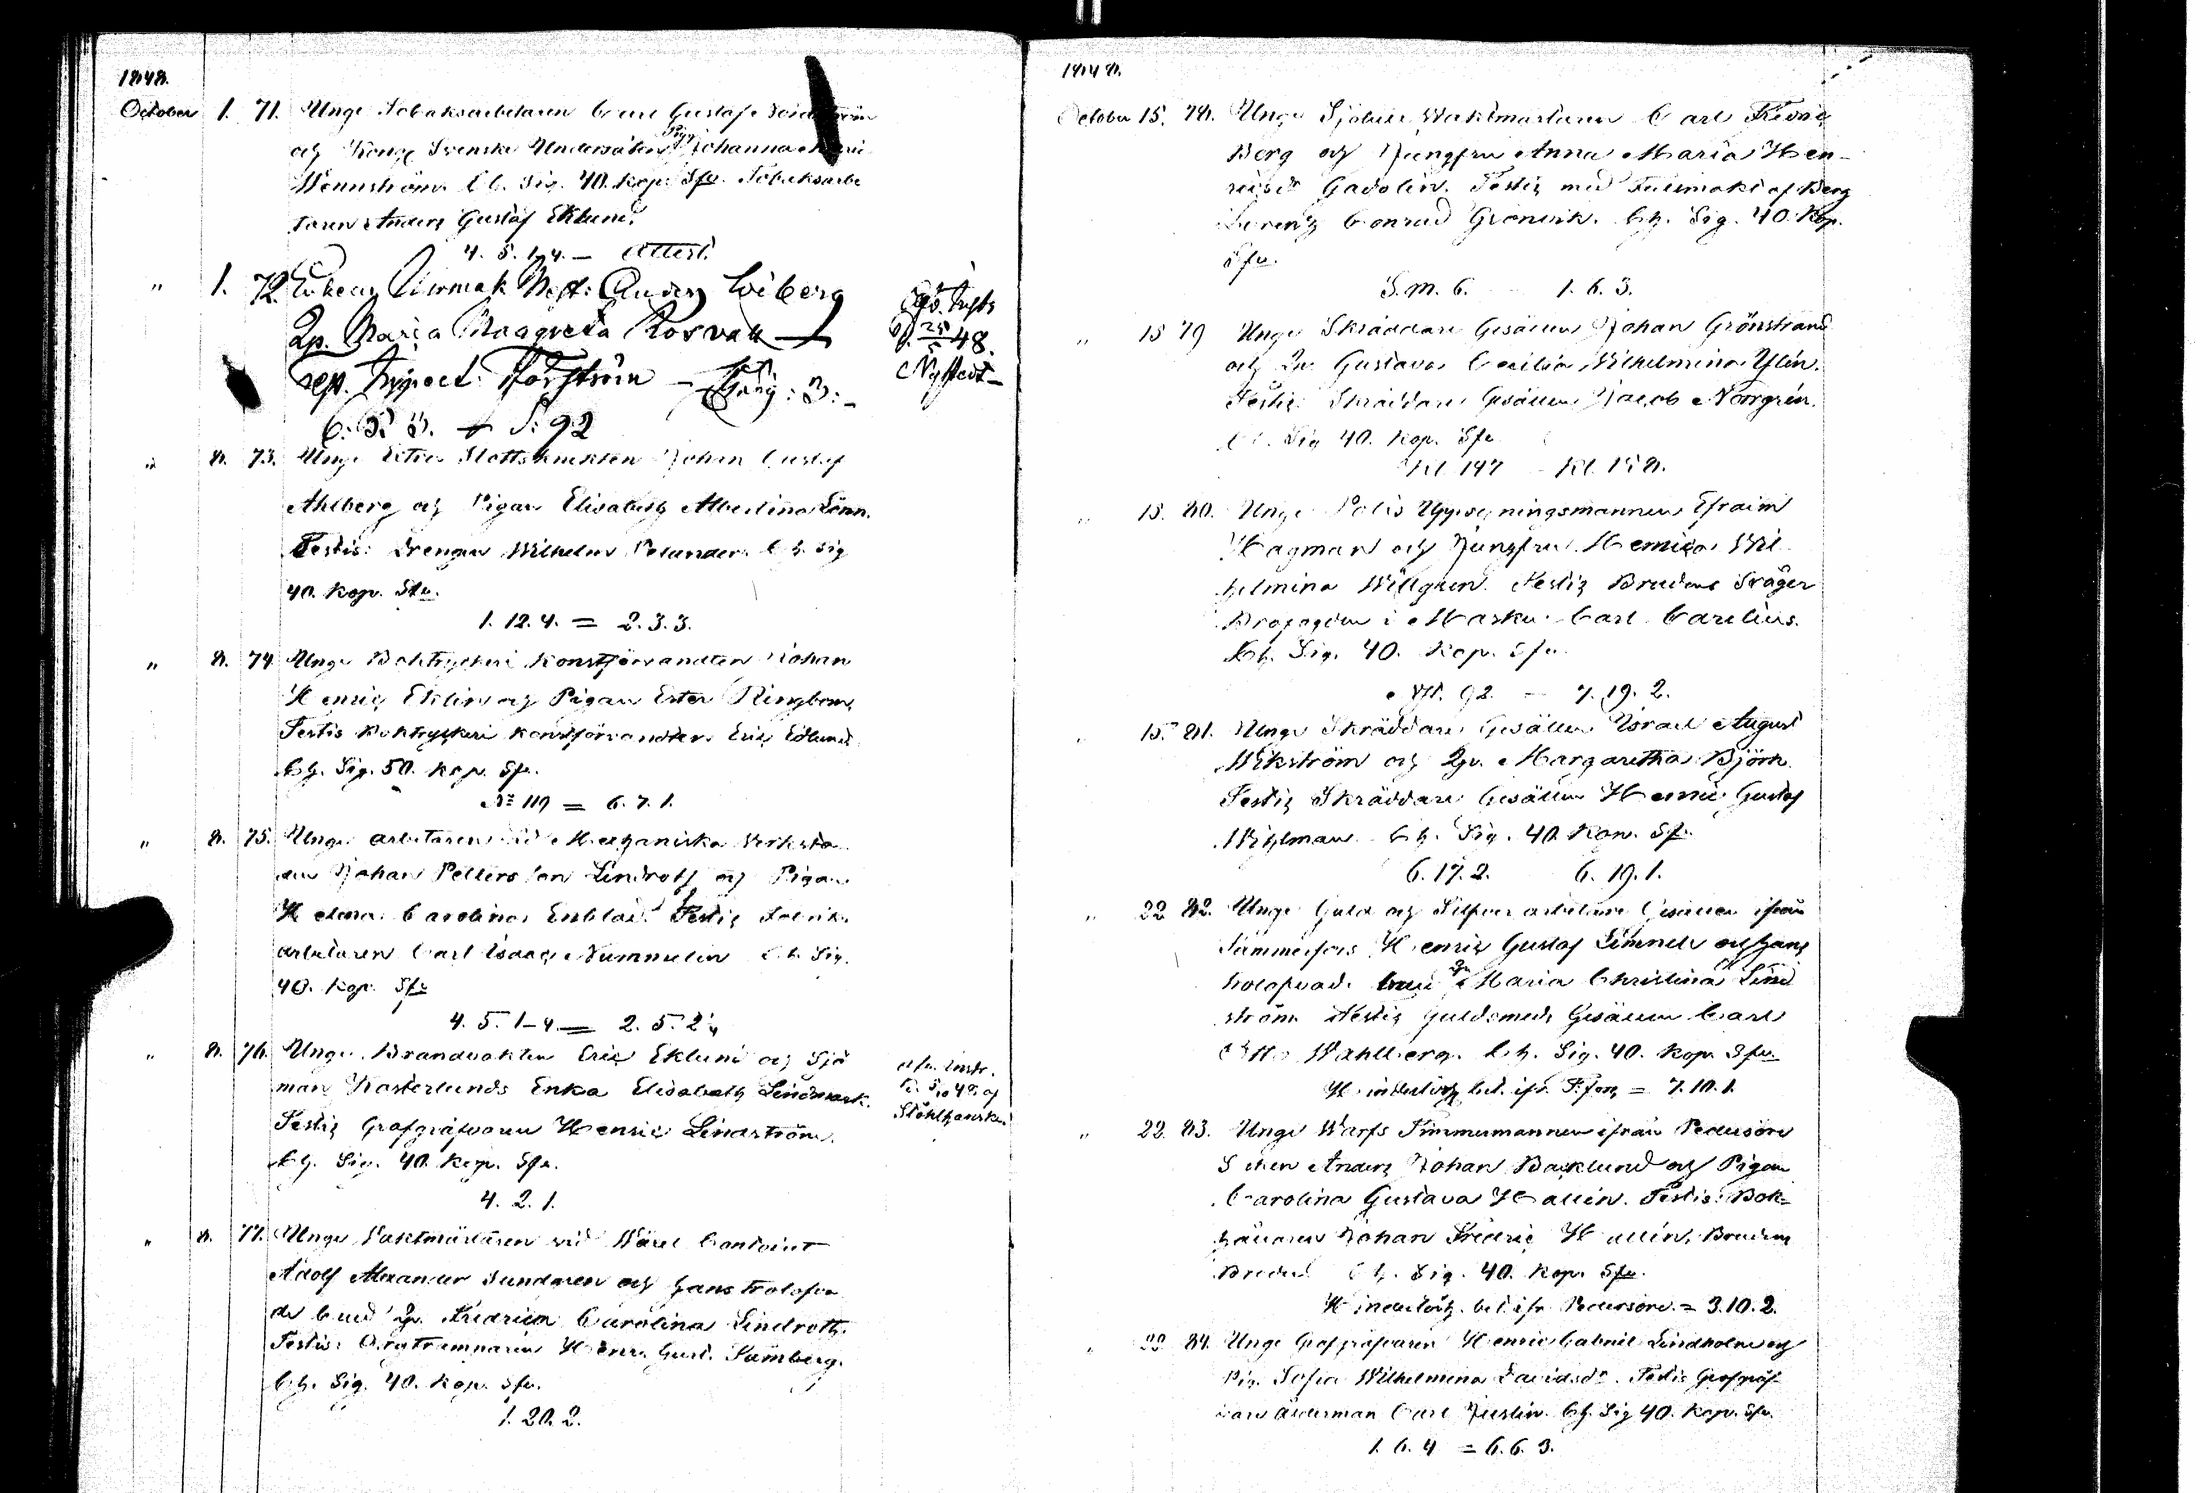 1848.
October 1. 71. Unge Tobaksarbetaren Carl Gustaf
och Kongl Svenska Undersåten Pig. Johanna
Wennström. Ch. Sig. 40. Kop. Sfr. Tobaksarbe
taren Anders Gustaf Eklund.
4. 5. 1-4. — Attest.
" 1. 72. Anders Wiberg
Qp. Maria Margreta Rosvall
6. 3. 3. S: 92
48.
Nystedt
" 8. 73. Unge Extra Slottsknekten Johan Gustaf
Ahlberg och Pigan Elisabeth Albertina Lönn.
Testis: Drengen Wilhelm Polander. Ch. Sig
40. Kop. Sfr.
1. 12. 4. = 2. 3. 3.
" 8. 74 Unge Boktryckeri Konstförvandten Johan
Henric Eklin och Pigan Ester Ringbom,
Testis Boktryckeri Konstförvandten Eric Edlund
Ch. Sig. 50. Kop. Sfr.
N: 119 = 6. 7. 1.
" 8. 75. Unge arbetaren vid Mechaniska Verksta
den Johan Pettersson Lindroth och Pigan
Helena Carolina Enblad. Testis Fabriks
arbetaren Carl Isaac Nummelin Ch. Sig.
40. Kop. Sfr
4. 5. 1-4. = 2. 5. 2
" 8. 76. Unge Brandvakten Eric Eklund och Sjö
man Kasterlunds Enka Elisabeth Lindmark.
Testis Grofgräfvaren Henric Lindström.
Ch. Sig. 40. Kop. Sfr.
4. 2. 1.
" 8. 77. Unge Vaktmästaren vid Wäxel Contoiret
Adolf Alexander Sundgren och hans trolofva
de brud Qp. Fredrica Carolina Lindroth.
Testis: Orgtramparen Henr. Gust. Samberg.
Ch. Sig. 40. Kop. Sfr.
1. 20. 2.
1848.
October 15. 78. Unge Sjötull Waktmästaren Carl Fredric
Berg och Jungfru Anna Maria Hen-
ricsdr Gadolin. Testis med Fullmakt af Berg
Lorentz Conrad Grönvik. Ch. Sig. 40. Kop.
Sfr.
S. M. 6. — 1. 6. 3.
" 15 79 Unge Skräddare Gesällen Johan Grönstrand
och Qp. Gustava Cecilia Wilhelmina Ylén.
Testis: Skräddare Gesällen Jacob Norrgrén.
Ch. Sig 40. Kop. Sfr
Kl. 147 — Kl. 158.
" 15. 80. Unge Polis Uppsyningsmannen Efraim
Hagman och Jungfru Henrica Wil
helmina Willgren. Testis Brudens Svåger
Profogden i Masku Carl Carelius.
Ch. Sig. 40. Kop. Sfr.
92. — 7. 19. 2.
" 15. 81. Unge Skräddare Gesällen Israel August
Wikström och Qp. Margaretha Björk.
Testis Skräddare Gesällen Henric Gustaf
Wihlman. Ch. Sig. 40. Kop. Sfr.
6. 17. 2. 6. 19. 1.
" 22 82. Unge Guld och Silfver arbetare Gesällen ifrån
Tammerfors Henric Gustaf Limnell och hans
trolofvade brud Qp Maria Christina Lind
ström. Testis Guldsmeds Gesällen Carl
Otto Wahlberg. Ch. Sig. 40. Kop. Sfr.
Hinderlösh. bet. ifr. T:fors = 7. 10. 1.
" 22. 83. Unge Warfs Timmermannen ifrån Pedersöre
Socken Anders Johan Backlund och Pigan
Carolina Gustava Hallin. Testis: Bok-
hållaren Johan Fredric Hallin, Brudens
Broder. Ch. Sig. 40. Kop. Sfr.
Hinderlösh. bet. ifr. Pedersöre. = 3. 10. 2.
" 22 84. Unge Grofgräfvaren Henric Gabriel Lindholm och
Pig. Sofia Wilhelmina Davidsdr. Testis Grofgräf
vare Ålderman Carl Justin. Ch. Sig 40. Kop. Sfr.
1. 6. 4 = 6. 6. 3.